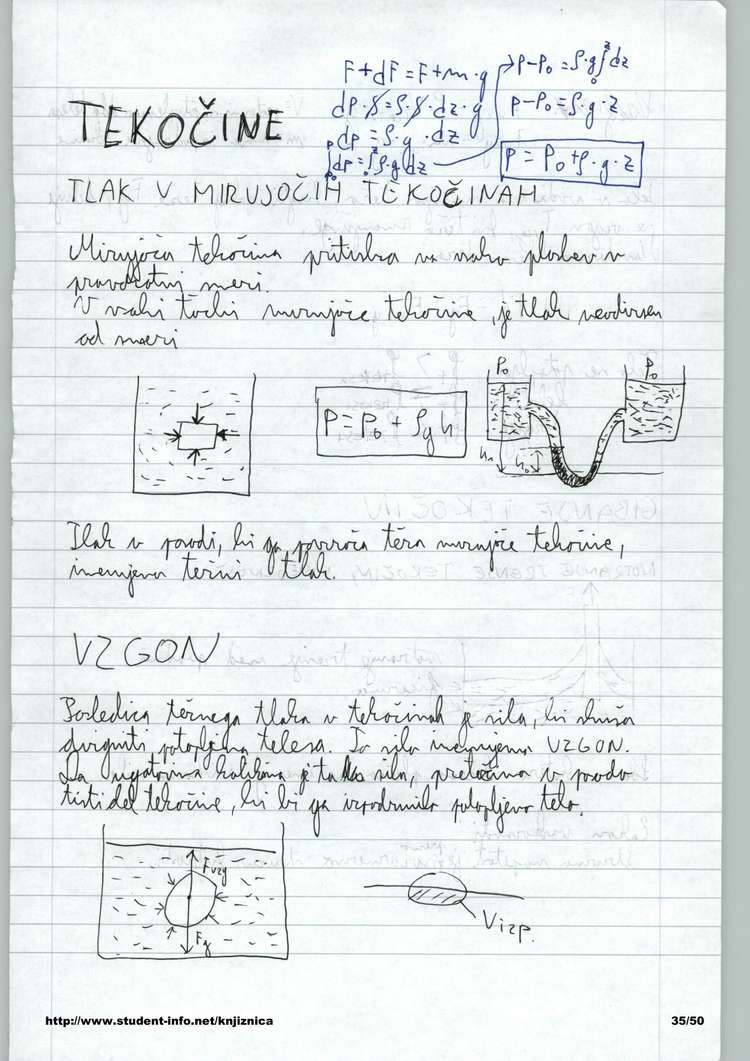 F+dF=F+m·g
dp·S=ρ·S·dz·g
dp=ρ·g·dz
∫dp=∫ρ·g dz
p-p₀=ρ·g∫dz
p-p₀=ρ·g·z
p=p₀+ρ·g·z
TEKOČINE
TLAK V MIRUJOČIH TEKOČINAH
Mirujoča tekočina pritiska na vsako ploskev v
pravokotni smeri.
V vsaki točki mirujoče tekočine, je tlak neodvisen
od smeri
P₀ P₀
P=P₀+ρgh
h₁ h₀
Tlak v posodi, ki ga povzroča teža mirujoče tekočine,
imenujemo težni tlak.
VZGON
Posledica težnega tlaka v tekočinah je sila, ki skuša
dvigniti potopljena telesa. To silo imenujemo VZGON.
Da ugotovimo kolikšna je ta sila, pretočimo v posodo
tisti del tekočine, ki bi ga izpodrinilo potopljeno telo.
Fvzg
Fg
Vizp.
http://www.student-info.net/knjiznica 35/50